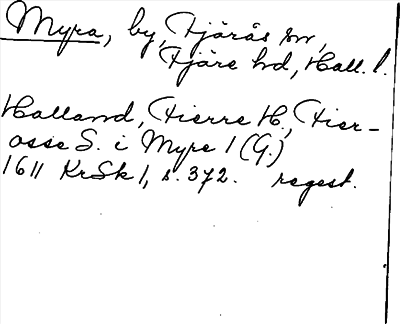 Myra, by, Fjärås sn,
Fjäre hd, Hall. l.
Halland, Fierre H., Fier-
osse S. i Myre 1 (G.)
1611 KrSk 1, s. 372. regest.